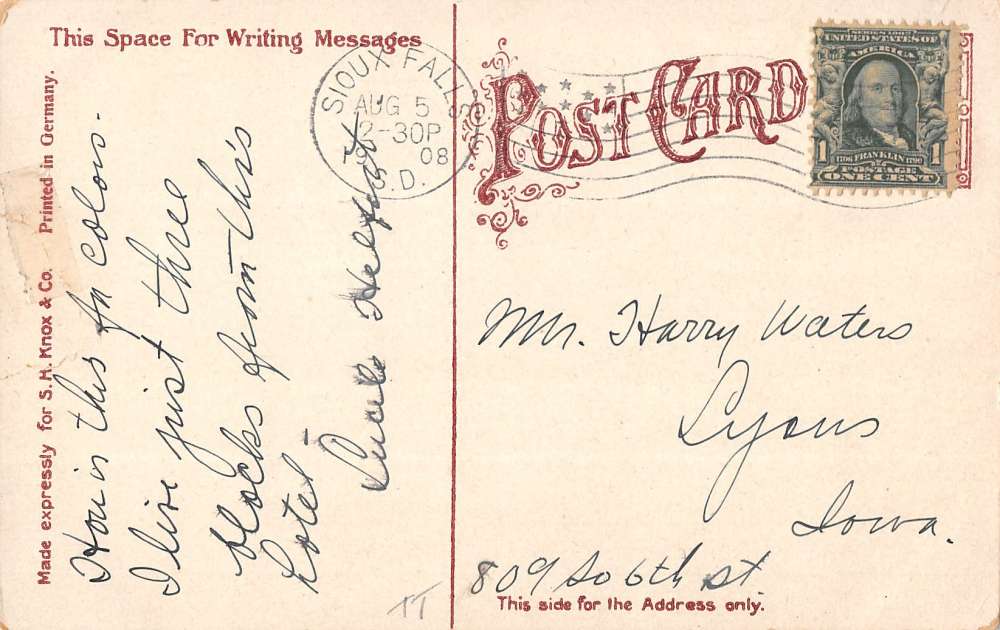 This Space For Writing Messages
Made expressly for S. H. Knox & Co. Printed in Germany.
How is this for colors.
I live just three
blocks from this
hotel -
SIOUX FALLS
AUG 5
2-30P
1908
S.D.
POST CARD
SERIES 1902
UNITED STATES OF
AMERICA
1 1706 FRANKLIN 1790 1
POSTAGE
ONE CENT
Mr. Harry Waters
Lyons
Iowa.
809 So 6th st
This side for the Address only.
TT